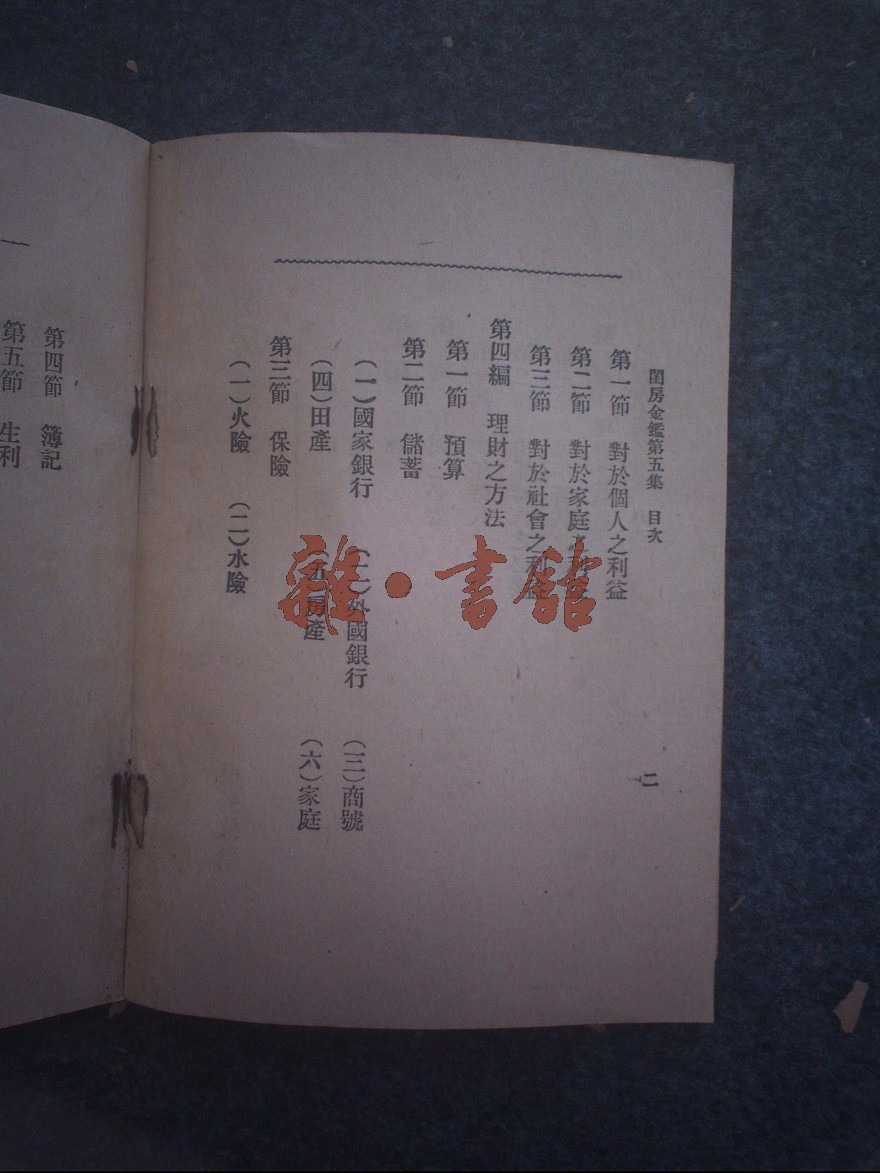 閨房金鑑第五集 目次 二
第一節 對於個人之利益
第二節 對於家庭之利益
第三節 對於社會之利益
第四編 理財之方法
第一節 預算
第二節 儲蓄
(一)國家銀行 (二)外國銀行 (三)商號
(四)田產 (五)房產 (六)家庭
第三節 保險
(一)火險 (二)水險
第四節 簿記
第五節 生利
雜·書館